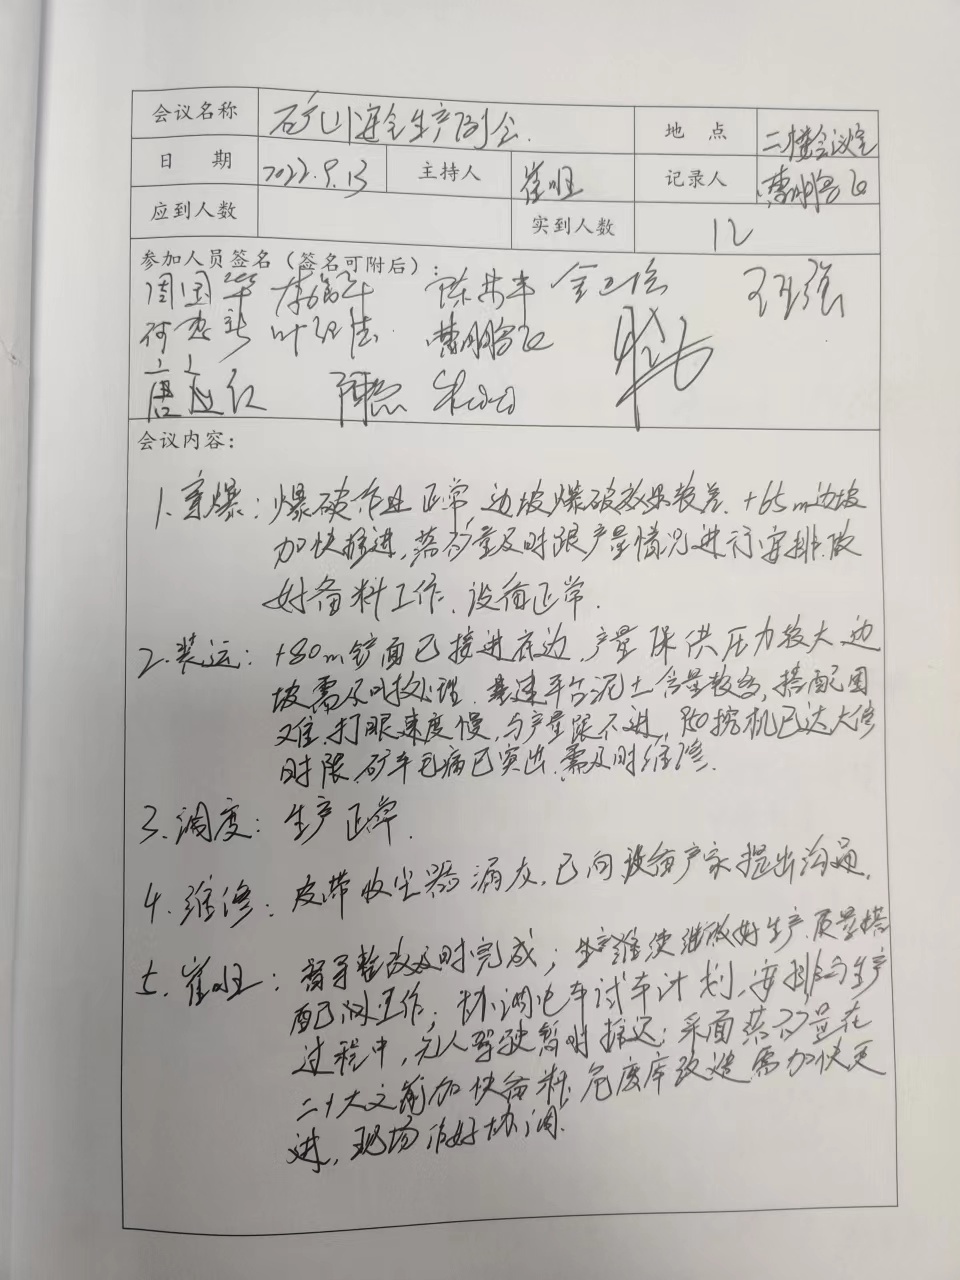 会议名称 矿山安全生产例会. 地 点 二楼会议室
日 期 2022.9.13 主持人 崔旺 记录人 曹鹏飞
应到人数 实到人数 12
参加人员签名（签名可附后）：
周国华
叶红 曹鹏飞
唐 陈
会议内容：
1. 穿爆：爆破作业正常，边坡爆破效果较差. +65m边坡
加快推进，蓄矿量及时跟产量情况进行安排.做
好备料工作、设备正常.
2. 装运：+80m铲面已接进底边，产量保供压力较大，边
坡需及时处理. 平台泥土含量较多，搭配困
难.打眼速度慢，与产量跟不进，挖机已达大修
时限，矿车毛病已突出，需及时维修.
3. 调度：生产正常.
4. 维修：皮带收尘器漏灰，已向设备产家提出沟通.
5. 崔旺：督导整改及时完成；生产继做好生产.质量搭
配工作；协调电车试车计划，安排生产
过程中，无人驾驶暂时推迟；采面蓄矿量在
二十大之前加快备料，库改造需加快更
进，现场作好协调.